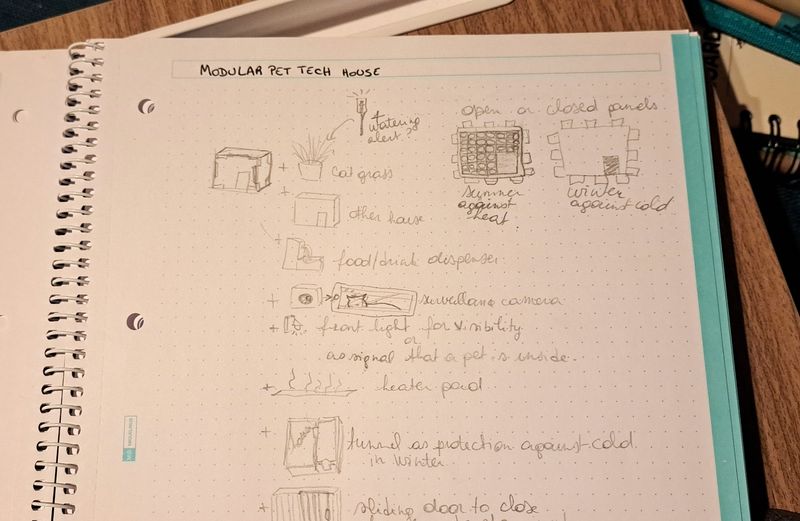 MODULAR PET TECH HOUSE
watering
alert?
open or closed panels
+ cat grass
summer
against
heat.
winter
against cold
+
other house
+
food/drink dispenser
+ surveillance camera
+ front light for visibility
or
as signal that a pet is inside.
+ heater pad
+ tunnel as protection against cold
in winter
+ sliding door to close